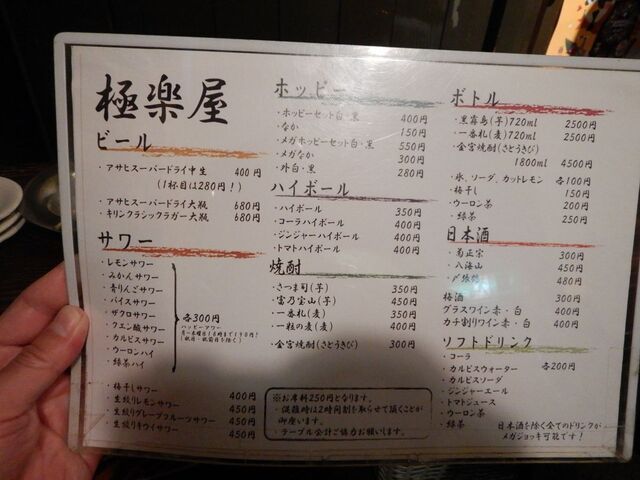 極楽屋
ビール
・アサヒスーパードライ中生 400円
(1杯目は280円！)
・アサヒスーパードライ大瓶 680円
・キリンクラシックラガー大瓶 680円
サワー
・レモンサワー
・みかんサワー
・青りんごサワー
・バイスサワー
・ザクロサワー
・クエン酸サワー
・カルピスサワー
・ウーロンハイ
・緑茶ハイ
各300円
ハッピーアワー
月〜木曜日18時まで190円！
(祝日・祝前日を除く)
・梅干しサワー 400円
・生絞りレモンサワー 450円
・生絞りグレープフルーツサワー 450円
・生絞りキウイサワー 450円
ホッピー
・ホッピーセット白・黒 400円
・なか 150円
・メガホッピーセット白・黒 550円
・メガなか 300円
・外白・黒 280円
ハイボール
・ハイボール 350円
・コーラハイボール 400円
・ジンジャーハイボール 400円
・トマトハイボール 400円
焼酎
・さつま旬(芋) 350円
・富乃宝山(芋) 450円
・一番札(麦) 350円
・一粒の麦(麦) 400円
・金宮焼酎(さとうきび) 300円
※お席料250円となります。
・混雑時は2時間制を取らせて頂くことが
御座います。
・テーブル会計ご協力お願いします。
ボトル
・黒霧島(芋)720ml 2500円
・一番札(麦)720ml 2500円
・金宮焼酎(さとうきび)
1800ml 4500円
・氷、ソーダ、カットレモン 各100円
・梅干し 150円
・ウーロン茶 200円
・緑茶 250円
日本酒
・菊正宗 300円
・八海山 450円
・〆張鶴 480円
梅酒 300円
グラスワイン赤・白 400円
カチ割りワイン赤・白 400円
ソフトドリンク
・コーラ
・カルピスウォーター
・カルピスソーダ
・ジンジャーエール
・トマトジュース
・ウーロン茶
・緑茶
各200円
日本酒を除く全てのドリンクが
メガジョッキ可能です！